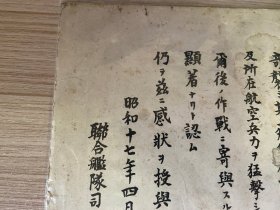 部
及所在航空兵力ヲ猛撃シ
爾後ノ作戰ニ寄與スル
顯著ナリト認ム
仍ヲ茲ニ感狀ヲ授與
昭和十七年四日
聯合艦隊司